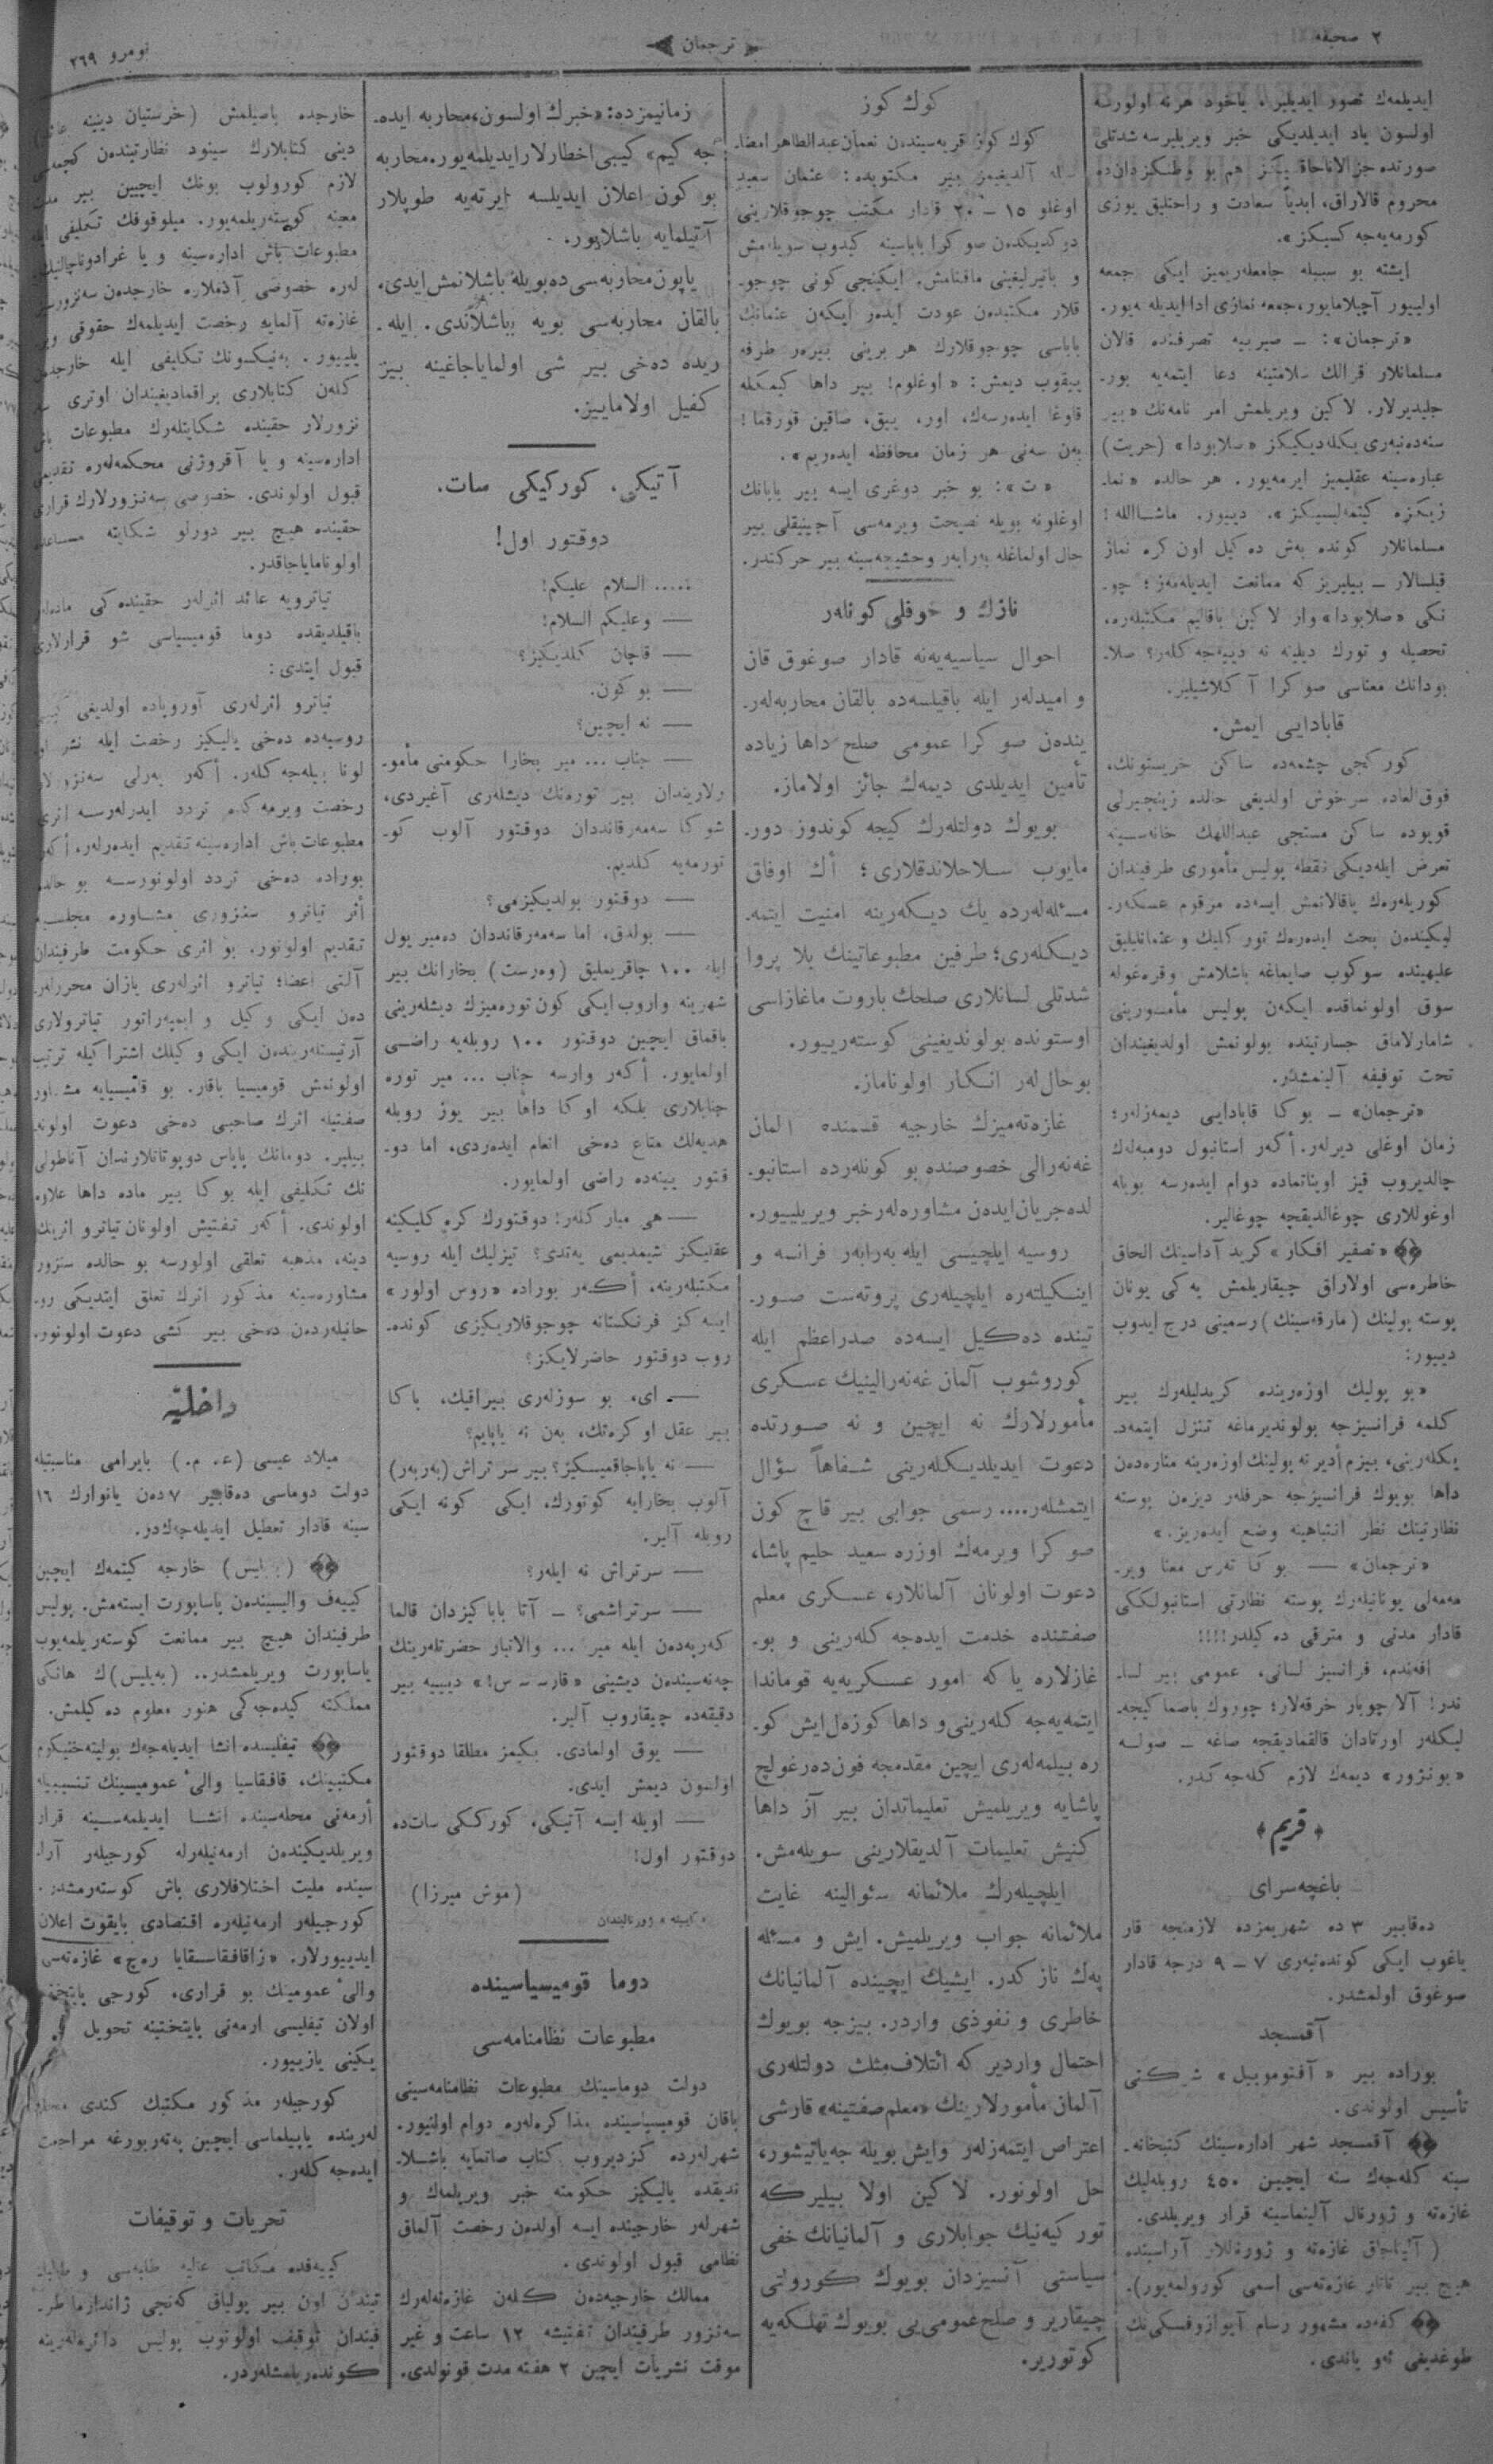 ۲ صحیفه
﴿ ترجمان ﴾
نومرو ۲۶۹
ایدیلمه‌ك تصور ایدیلیر. یاخود هر نه اولورسه
اولسون یاد ایدیلدیکی خبر ویریلیرسه شدتلی
صورتده جزالاناجاقسیکز هم بو وطنکزدان‌ده
محروم قالاراق، ابدیاً سعادت و راحتلیق یوزی
کورمه‌یه‌جه کسیکز».
ایشته بو سببله جامعلریمیز ایکی جمعه
اولییور آچیلامایور، جمعه نمازی ادا ایدیله‌مه‌یور.
«ترجمان»: ـ صربیه تصرفنده قالان
مسلمانلار قرالك سلامتینه دعا ایتمه‌یه بور-
جلیدیرلار. لاکین ویریلمش امر نامه‌نك «بیر
سنه‌دنبه‌ری بکله‌دیکیکز «سلابودا» (حریت)
عباره‌سینه عقلیمیز ایرمه‌یور. هر حالده «نما-
زیکزه کیتمه‌لیسیکز». دییور. ماشاالله!
مسلمانلار کونده به‌ش ده‌کیل اون کره نماز
قیلسالار ـ بیلیریز که ممانعت ایدیله‌مه‌ز؛ چو-
نکی «صلابودا» وار لاکین باقالیم مکتبلره،
تحصیله و تورك دیلینه نه دییه‌جه کلر؟ صلا-
بودانك معناسی صوکرا آکلاشیلیر.
قابادایی ایمش.
کورکجی چشمه‌ده ساکن خریستونك،
فوق‌العاده سرخوش اولدیغی حالده زینجیرلی
قویوده ساکن مستجی عبداللهك خانه‌سینه
تعرض ایله‌دیکی نقطه پولیس مأموری طرفیندان
کوریله‌رك یاقالانمش ایسه‌ده مرقوم عسکر-
لیکیندن بحث ایده‌رك تورکلیك و عثمانلیلیق
علیهینده سوکوب صایماغه باشلامش وقره‌غوله
سوق اولونماقده ایکه‌ن پولیس مأمورینی
شامارلاماق جسارتینده بولونمش اولدیغیندان
تحت توقیفه آلینمشدر.
«ترجمان» ـ بوکا قابادایی دیمه‌زلر؛
زمان اوغلی دیرلر. أکر استانبول دومبه‌لك
چالدیروب قیز اویناتماده دوام ایده‌رسه بویله
اوغوللاری چوغالدیقچه چوغالیر.
﴿﴾ «تصفیر افکار» کرید آداسینك الحاق
خاطره‌سی اولاراق چیقاریلمش یه‌کی یونان
پوسته پولینك (مارقه‌سینك) رسمینی درج ایدوب
دییور:
«بو پولیك اوزه‌رینده کریدلیلرك بیر
کلمه فرانسیزجه بولوندیرماغه تنزل ایتمه‌د-
یکلرینی، بیزم أدیرنه پولینك اوزه‌رینه مناره‌ده‌ن
داها بویوك فرانسیزجه حرفلر دیزه‌ن پوسته
نظارتینك نظر انتباهینه وضع ایده‌ریز.»
«ترجمان» — بوکا ته‌رس معنا ویر-
مه‌مه‌لی یونانیلرك پوسته نظارتی استانبولککی
قادار مدنی و مترقی ده‌کیلدر!!!!
افه‌ندم، فرانسیز لسانی، عمومی بیر لسا-
ندر! آلا چوبار خرقه‌لار؛ چوروك باصما کیجه-
لیکلر اورتادان قالقمادیقجه صاغه ـ صوله
«بونژور» دیمه‌ك لازم کله‌جه‌کدر.
﴿ قریم ﴾
باغچه‌سرای
ده‌قابیر ۳ ده شهریمزده لازمنجه قار
یاغوب ایکی کونده‌نبه‌ری ۷ ـ ۹ درجه قادار
صوغوق اولمشدر.
آقمسجد
بوراده بیر «آفتوموبیل» شرکتی
تأسیس اولوندی.
﴿﴾ آقمسجد شهر اداره‌سینك کتبخانه-
سینه کله‌جه‌ك سنه ایچیین ٤٥٠ روبله‌لیك
غازه‌ته و ژورنال آلینماسینه قرار ویریلدی.
(آلیناجاق غازه‌ته و ژورناللار آراسینده
هیچ بیر تاتار غازه‌ته‌سی اسمی کورولمه‌یور).
﴿﴾ کفه‌ده مشهور رسام آیوازوفسکی‌نك
طوغدیغی ئه‌و یاندی.
کوك کوز
کوك کوز قریه‌سیندن نعمان عبدالطاهر امضا-
سیله آلدیغیمز بیر مکتوبده: عثمان سعید
اوغلو ۱۵ ـ ۲۰ قادار مکتب چوجوقلارینی
دوکدیکدن صوکرا باباسینه کیدوب سویله‌مش
و باتیرلیغینی ماقتانمش. ایکینجی کونی چوجو-
قلار مکتبدن عودت ایدر ایکه‌ن عثمانك
باباسی چوجوقلارك هر برینی بیره‌ر طرفه
ییقوب دیمش: «اوغلوم! بیر داها کیمکله
قاوغا ایده‌رسه‌ك، اور، ییق، صاقین قورقما!
به‌ن سه‌نی هر زمان محافظه ایده‌ریم».
«ت»: بو خبر دوغری ایسه بیر بابانك
اوغلونه بویله نصیحت ویرمه‌سی آجینیقلی بیر
حال اولماغله به‌رابه‌ر وحشیجه‌سینه بیر حرکتدر.
نازك و خوفلی کونلر
احوال سیاسیه‌یه‌نه قادار صوغوق قان
و امیدلر ایله باقیلسه‌ده بالقان محاربه‌لر-
یندن صوکرا عمومی صلح داها زیاده
تأمین ایدیلدی دیمه‌ك جائز اولاماز.
بویوك دولتلرك کیجه کوندوز دور-
مایوب سلاحلاندقلاری؛ أك اوفاق
مسئله‌لرده یك دیکرینه امنیت ایتمه-
دیکلری؛ طرفین مطبوعاتینك بلا پروا
شدتلی لسانلاری صلحك باروت ماغازاسی
اوستونده بولوندیغینی کوسته‌رییور.
بوحال‌لر انکار اولوناماز.
غازه‌ته‌میزك خارجیه قسمنده آلمان
غه‌نه‌رالی خصوصنده بو کونلرده استانبو-
لده‌جریان‌ایده‌ن مشاوره‌لر خبر ویریلییور.
روسیه ایلچیسی ایله به‌رابه‌ر فرانسه و
اینکیلته‌ره ایلچیله‌ری پروته‌ست صور-
تینده ده‌کیل ایسه‌ده صدراعظم ایله
کوروشوب آلمان غه‌نه‌رالینیك عسکری
مأمورلارك نه ایچین و نه صورتده
دعوت ایدیلدیکلرینی شفاهاً سؤال
ایتمشلر.... رسمی جوابی بیر قاچ کون
صوکرا ویرمه‌ك اوزره سعید حلیم پاشا،
دعوت اولونان آلمانلار، عسکری معلم
صفتنده خدمت ایده‌جه کلرینی و بو-
غازلاره یاکه امور عسکریه‌یه قوماندا
ایتمه‌یه‌جه کلرینی و داها کوزه‌ل ایش کو-
ره بیلمه‌لری ایچین مقدمجه فون‌ده‌رغولچ
پاشایه ویریلمیش تعلیماتدان بیر آز داها
کنیش تعلیمات آلدیقلارینی سویله‌مش.
ایلچیلرك ملائمانه سئوالینه غایت
ملائمانه جواب ویریلمیش. ایش و مسئله
په‌ك نازکدر. ایشیك ایچینده آلمانیانك
خاطری و نفوذی واردر. بیزجه بویوك
احتمال واردیر که ائتلاف‌مثلث دولتلری
آلمان مأمورلارینك «معلم‌صفتینه» قارشی
اعتراض ایتمه‌زلر وایش بویله جه‌یاتیشور،
حل اولونور. لاکین اولا بیلیرکه
تورکیه‌نیك جوابلاری و آلمانیانك خفی
سیاستی آنسیزدان بویوك کورولتی
چیقاریر و صلح‌عمومی‌یی بویوك تهلکه‌یه
کوتوریر.
زمانیمزده: «خبرك اولسون، محاربه ایده-
جه کیم» کیبی اخطارلار ایدیلمه‌یور. محاربه
بو کون اعلان ایدیلسه ایرته‌یه طوپلار
آتیلمایه باشلایور.
یاپون محاربه‌سی ده‌بویله باشلانمش ایدی.
بالقان محاربه‌سی بویه باشلاندی. ایله-
ریده ده‌خی بیر شی اولمایاجاغینه بیز
کفیل اولامایز.
آتیکی، کورکیکی سات،
دوقتور اول!
..... السلام علیکم!
— وعلیکم السلام!
— قاچان کلدیکیز؟
— بوکون.
— نه ایچین؟
— جناب ... میر بخارا حکومتی مأمو-
رلاریندان بیر توره‌نك دیشله‌ری آغیردی،
شوکا سه‌مه‌رقانددان دوقتور آلوب کو-
تورمه‌یه کلدیم.
— دوقتور بولدیکیزمی؟
— بولدق، اما سه‌مه‌رقانددان ده‌میر یول
ایله ۱۰۰ چاقریملیق (وه‌رست) بخارانك بیر
شهرینه واروب ایکی کون توره‌میزك دیشلرینی
باقماق ایچین دوقتور ۱۰۰ روبله‌یه راضی
اولمایور. أکر وارسه جناب ... میر توره
جنابلاری بلکه اوکا داها بیر یوز روبله
هدیه‌لك متاع ده‌خی انعام ایده‌ردی، اما دو-
قتور یینه‌ده راضی اولمایور.
— هی میارکلر! دوقتورك کره‌کلیکینه
عقلیکز شیمدیمی یه‌تدی؟ تیزلیك ایله روسیه
مکتبلرینه، أکر بوراده «روس اولور»
ایسه‌کز فرنکستانه چوجوقلاریکیزی کونده-
روب دوقتور حاضرلایکز؟
— ای، بو سوزلری بیراقیك، باکا
بیر عقل اوکره‌تك، به‌ن نه یاپایم؟
— نه یاپاجاقمیسکیز؟ بیر سرتراش (به‌ربه‌ر)
آلوب بخارایه کوتورك، ایکی کونه ایکی
روبله آلیر.
— سرتراش نه ایلر؟
— سرتراشمی؟ ـ آتا باباکیزدان قالما
که‌ربه‌دن ایله میر ... والانبار حضرتلرینك
چه‌نه‌سیندن دیشینی «قارسسس!» دیییه بیر
دقیقه‌ده چیقاروب آلیر.
— یوق اولمادی. بکیمز مطلقا دوقتور
اولسون دیمش ایدی.
— اویله ایسه آتیکی، کورککی سات‌ده
دوقتور اول!
(موش میرزا)
«آیینه» ژورنالیندان
دوما قومیسیاسینده
مطبوعات نظامنامه‌سی
دولت دوماسینك مطبوعات نظامنامه‌سینی
باقان قومیسیاسینده مذاکره‌لره دوام اولنیور.
شهرلرده کزدیروب کتاب صاتمایه باشلا-
ندیقده یالیکیز حکومته خبر ویریلمك و
شهرلر خارجینده ایسه اولدن رخصت آلماق
نظامی قبول اولوندی.
ممالك خارجیه‌دن کلن غازه‌ته‌لرك
سه‌نزور طرفیندان تفتیشه ۱۲ ساعت و غیر
موقت نشریات ایچین ۲ هفته مدت قونولدی.
خارجده باصیلمش (خرستیان دینینه عائد)
دینی کتابلارك سینود نظارتیندن کچمه‌سی
لازم کورولوب بونك ایچیین بیر مدت
معینه کوسته‌ریلمه‌یور. میلوقوفك تکلیفی ایله
مطبوعات باش اداره‌سینه و یا غرادوناچالنیك-
لره خصوصی آدملاره خارجدن سه‌نزورسز
غازه‌ته آلمایه رخصت ایدیلمه‌ك حقوقی ویر-
یلییور. به‌نیکسونك تکلیفی ایله خارجدن
کلن کتابلاری براقمادیغیندان اوتری سه-
نزورلار حقینده شکایتلرك مطبوعات باش
اداره‌سینه و یا آقروژنی محکمه‌لره تقدیمی
قبول اولوندی. خصوصی سه‌نزورلارك قراری
حقینده هیچ بیر دورلو شکایته مساعده
اولونامایاجاقدر.
تیاترویه عائد اثرلر حقینده‌کی ماده‌لر
باقیلدیقده دوما قومیسیاسی شو قرارلاری
قبول ایتدی:
تیاترو اثرلری آوروپاده اولدیغی کیبی
روسیه‌ده ده‌خی یالیکیز رخصت ایله نشر او-
لونا بیله‌جه‌کلر. أکر یه‌رلی سه‌نزورلار
رخصت ویرمه‌کده تردد ایدرلرسه اثری
مطبوعات باش اداره‌سینه تقدیم ایده‌رلر، أکر
بوراده ده‌خی تردد اولونورسه بو حالده
أثر تیاترو سنزوری مشاوره مجلسینه
تقدیم اولونور. بو اثری حکومت طرفیندان
آلتی اعضا؛ تیاترو اثرلری یازان محررلر-
دن ایکی وکیل و ایمپه‌راتور تیاترولاری
آرتیستلریندن ایکی وکیلك اشتراکیله ترتیب
اولونمش قومیسیا باقار. بو قامیسیایه مشاور
صفتیله اثرك صاحبی ده‌خی دعوت اولونه-
بیلیر. دومانك پاپاس دوپوتاتلارندان آناطولی
نك تکلیفی ایله بوکا بیر ماده داها علاوه
اولوندی. أکر تفتیش اولونان تیاترو اثرینك
دینه، مذهبه تعلقی اولورسه بو حالده سنزور
مشاوره‌سینه مذکور اثرك تعلق ایتدیکی رو-
حانیلردن ده‌خی بیر کشی دعوت اولونور.
داخلیه
میلاد عیسی (ع. م.) بایرامی مناسبتیله
دولت دوماسی ده‌قابیر ۷ دن یانوارك ۱۶
سینه قادار تعطیل ایدیله‌جه‌کدر.
﴿﴾ (بیلیس) خارجه کیتمه‌ك ایچین
کییه‌ف والیسیندن پاساپورت ایسته‌مش. پولیس
طرفیندان هیچ بیر ممانعت کوسته‌ریلمه‌یوب
پاساپورت ویریلمشدر.. (به‌یلیس)ك هانکی
مملکته کیده‌جه‌کی هنوز معلوم ده‌کیلمش.
﴿﴾ تیفلیسده انشا ایدیله‌جه‌ك پولیته‌خنیکوم
مکتبینك، قافقاسیا والیٔ عمومیسینك تنسیبیله
أرمه‌نی محله‌سینده انشا ایدیلمه‌سینه قرار
ویریلدیکیندن ارمه‌نیلرله کورجیلر آرا-
سینده ملیت اختلافلاری باش کوسته‌رمشدر.
کورجیلر ارمه‌نیلره اقتصادی بایقوت اعلان
ایدییورلار. «زاقافقاسقایا ره‌چ» غازه‌ته‌سی
والیٔ عمومینك بو قراری، کورجی پایتختی
اولان تیفلیسی ارمه‌نی پایتختینه تحویل
یکینی یازییور.
کورجیلر مذکور مکتبك کندی محله
لرینده یاپیلماسی ایچین په‌ته‌ربورغه مراجعت
ایده‌جه کلر.
تحریات و توقیفات
کییه‌فده مکاتب عالیه طلبه‌سی و طلبا-
تیندن اون بیر پولیاق که‌نجی ژاندارما طر-
فیندان توقیف اولونوب پولیس دائره‌لرینه
کونده‌ریلمشلردر.